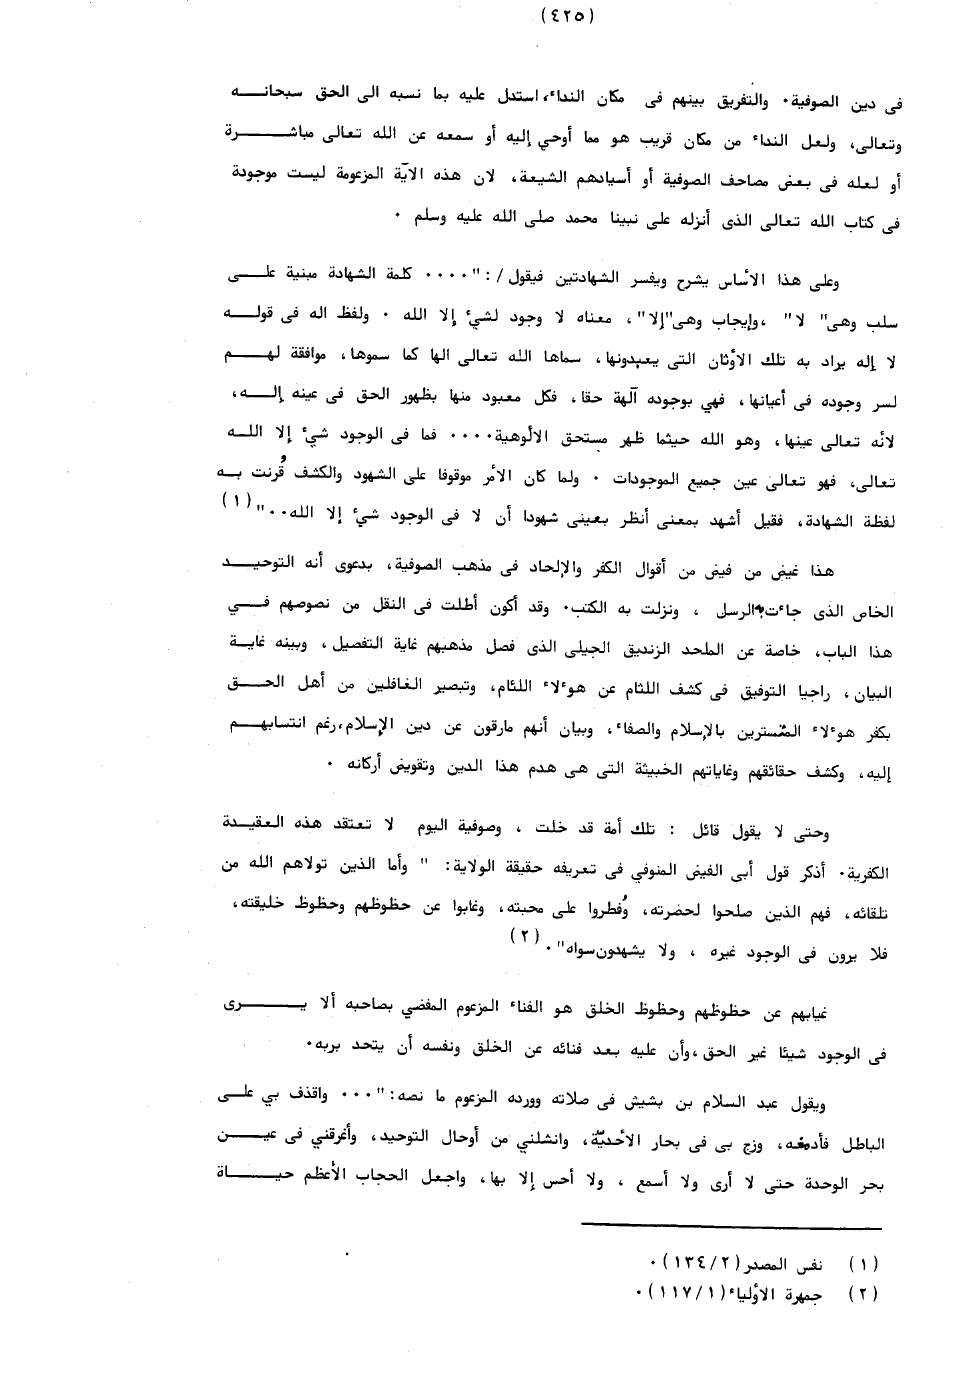 (٤٢٥)
فى دين الصوفية. والتفريق بينهم فى مكان النداء، استدل عليه بما نسبه الى الحق سبحانـــه
وتعالى، ولعل النداء من مكان قريب هو مما أوحي إليه أو سمعه عن الله تعالى مباشـــــرة
أو لعله فى بعض مصاحف الصوفية أو أسيادهم الشيعة، لان هذه الآية المزعومة ليست موجودة
فى كتاب الله تعالى الذى أنزله على نبينا محمد صلى الله عليه وسلم .
وعلى هذا الأساس يشرح ويفسر الشهادتين فيقول/: "٠٠٠٠ كلمة الشهادة مبنية علـــى
سلب وهى" لا" ،وإيجاب وهى"إلا"، معناه لا وجود لشيء إلا الله . ولفظ اله فى قولـــه
لا إله يراد به تلك الأوثان التى يعبدونها، سماها الله تعالى الها كما سموها، موافقة لهـــم
لسر وجوده فى أعيانها، فهي بوجوده آلهة حقا، فكل معبود منها بظهور الحق فى عينه إلـــه،
لأنه تعالى عينها، وهو الله حيثما ظهر مستحق الألوهية٠٠٠٠ فما فى الوجود شيء إلا اللـــه
تعالى، فهو تعالى عين جميع الموجودات . ولما كان الأمر موقوفا على الشهود والكشف قُرنت بــه
لفظة الشهادة، فقيل أشهد بمعنى أنظر بعينى شهودا أن لا فى الوجود شيء إلا الله.." (١)
هذا غيض من فيض من أقوال الكفر والإلحاد فى مذهب الصوفية، بدعوى أنه التوحيـــد
الخاص الذى جاءت به الرسل ، ونزلت به الكتب. وقد أكون أطلت فى النقل من نصوصهم فـــي
هذا الباب، خاصة عن الملحد الزنديق الجيلى الذى فصل مذهبهم غاية التفصيل، وبينه غايـــة
البيان، راجيا التوفيق فى كشف اللثام عن هؤلاء اللئام، وتبصير الغافلين من أهل الحـــق
بكفر هؤلاء المتسترين بالإسلام والصفاء، وبيان أنهم مارقون عن دين الإسلام،رغم انتسابهـــم
إليه، وكشف حقائقهم وغاياتهم الخبيثة التى هى هدم هذا الدين وتقويض أركانه .
وحتى لا يقول قائل : تلك أمة قد خلت ، وصوفية اليوم لا تعتقد هذه العقيـــدة
الكفرية. أذكر قول أبى الفيض المنوفي فى تعريفه حقيقة الولاية: " وأما الذين تولاهم الله من
تلقائه، فهم الذين صلحوا لحضرته، وُفطروا على محبته، وغابوا عن حظوظهم وحظوظ خليقته،
فلا يرون فى الوجود غيره ، ولا يشهدون سواه". (٢)
غيابهم عن حظوظهم وحظوظ الخلق هو الفناء المزعوم المفضي بصاحبه ألا يـــــرى
فى الوجود شيئا غير الحق،وأن عليه بعد فنائه عن الخلق ونفسه أن يتحد بربه.
ويقول عبد السلام بن بشيش فى صلاته وورده المزعوم ما نصه: "٠٠٠ واقذف بي علـــى
الباطل فأدمغه، وزج بى فى بحار الأحديّة، وانشلني من أوحال التوحيد، وأغرقني فى عيـــن
بحر الوحدة حتى لا أرى ولا أسمع ، ولا أحس إلا بها، واجعل الحجاب الأعظم حيـــاة
(١) نفس المصدر(١٣٤/٢).
(٢) جمهرة الأولياء(١١٧/١).